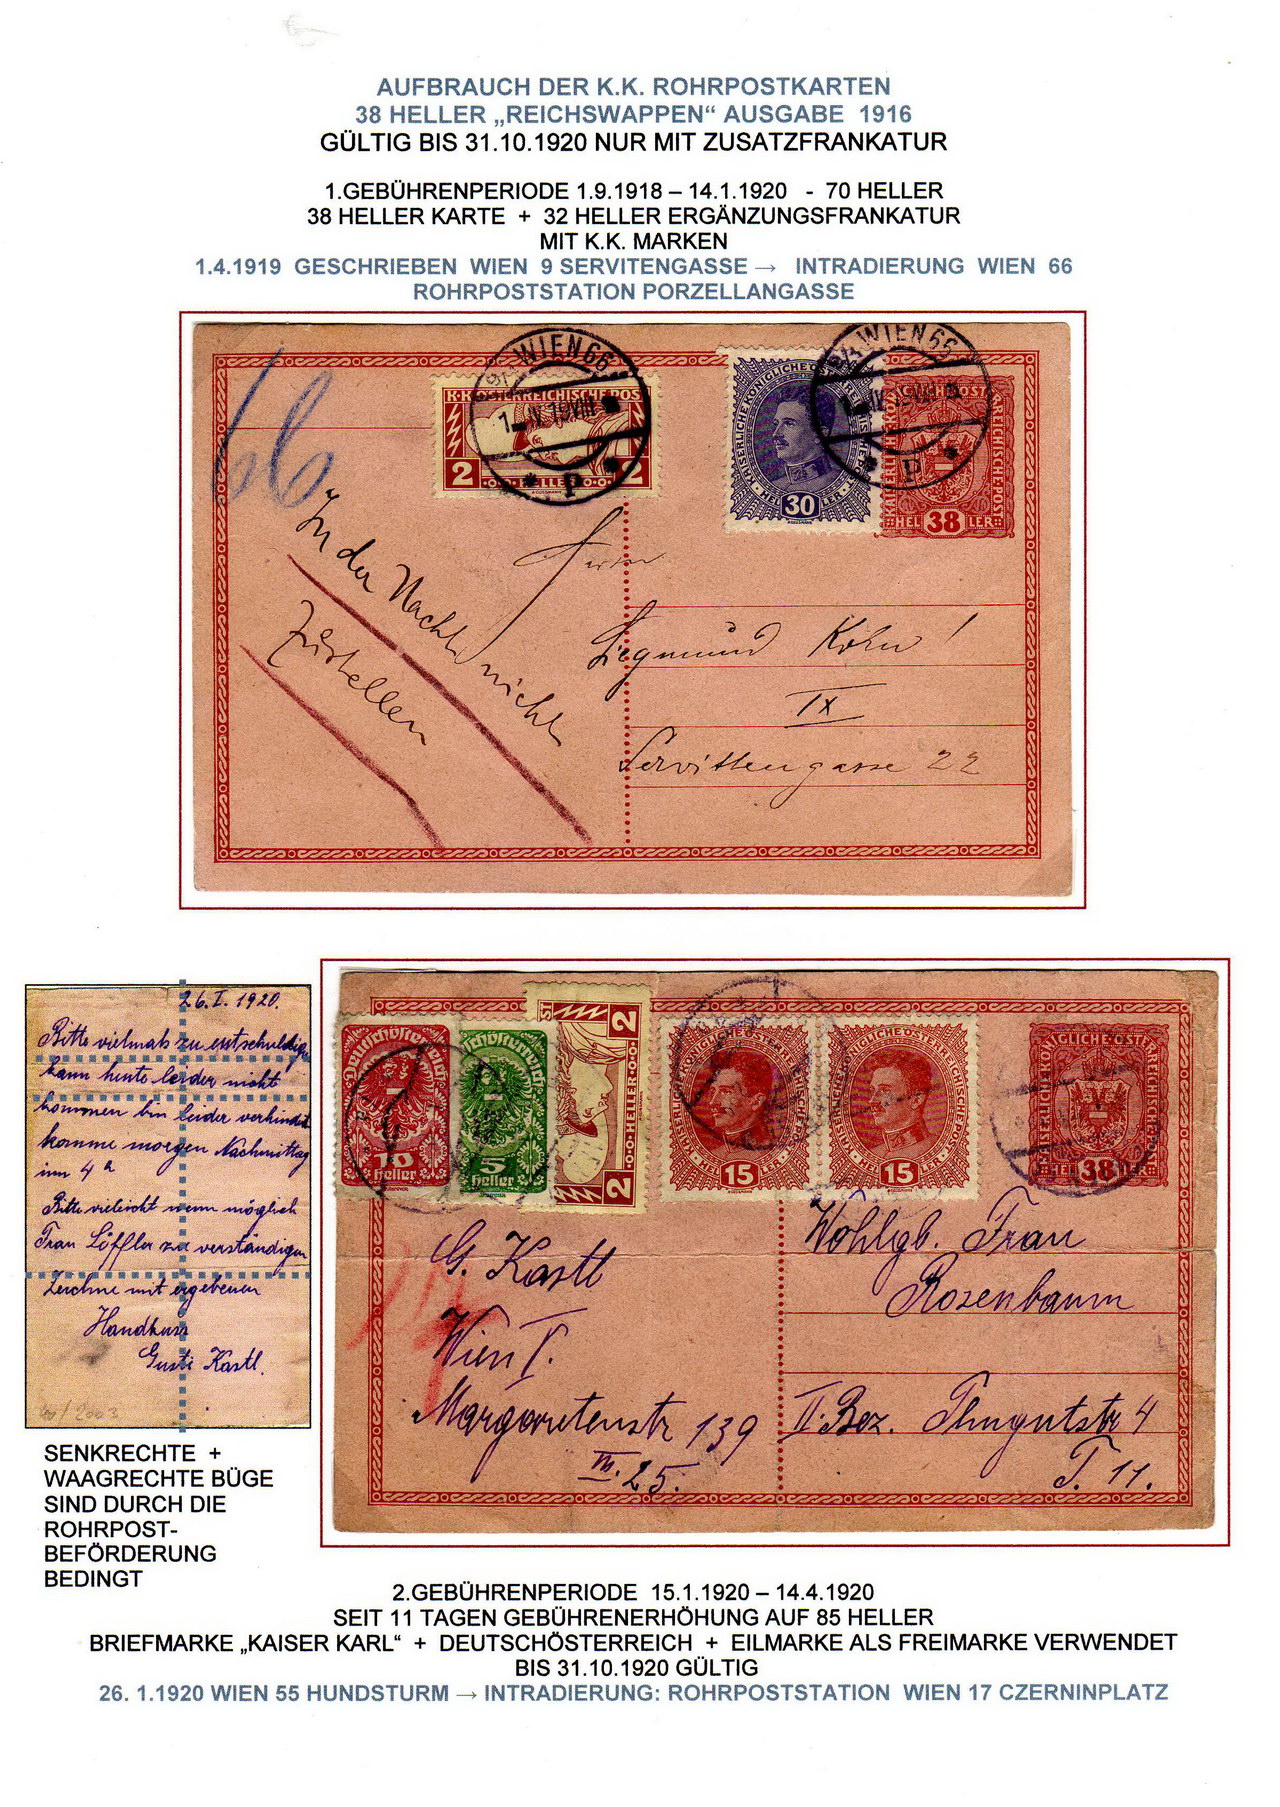 AUFBRAUCH DER K.K. ROHRPOSTKARTEN
38 HELLER „REICHSWAPPEN“ AUSGABE 1916
GÜLTIG BIS 31.10.1920 NUR MIT ZUSATZFRANKATUR
1.GEBÜHRENPERIODE 1.9.1918 – 14.1.1920 - 70 HELLER
38 HELLER KARTE + 32 HELLER ERGÄNZUNGSFRANKATUR
MIT K.K. MARKEN
1.4.1919 GESCHRIEBEN WIEN 9 SERVITENGASSE → INTRADIERUNG WIEN 66
ROHRPOSTSTATION PORZELLANGASSE
WIEN 66
1 IV 19 VIII
P
K.K. ÖSTERREICHISCHE POST
2 HELLER 2
KAISERLICHE KÖNIGLICHE ÖSTERREICHISCHE POST
HELLER
30
WIEN 66
1 IV 19 VIII
P
KAISERLICHE KÖNIGLICHE ÖSTERREICHISCHE POST
HELLER
38
66
In der Nacht nicht
zustellen
Herrn
Siegmund Kohn!
IX
Servittengasse 22
26.I.1920.
Bitte vielmals zu entschuldigen
kann heute leider nicht
kommen bin leider verhindert
komme morgen Nachmittag
um 4 h
Bitte vieleicht wenn möglich
Frau Löffler zu verständigen
Zeichne mit ergebenen
Handkuss
Gusti Kastl.
2003
Deutschösterreich
10
Heller
Deutschösterreich
5
Heller
2 HELLER 2
KAISERLICHE KÖNIGLICHE ÖSTERREICHISCHE POST
HELLER
15
KAISERLICHE KÖNIGLICHE ÖSTERREICHISCHE POST
HELLER
15
KAISERLICHE KÖNIGLICHE ÖSTERREICHISCHE POST
HELLER
38
G. Kastl
Wien V.
Margaretenstr 139
III. 25.
Wohlgb. Frau
Rosenbaum
II. Bez. Thugutstr 4
T. 11.
SENKRECHTE +
WAAGRECHTE BÜGE
SIND DURCH DIE
ROHRPOST-
BEFÖRDERUNG
BEDINGT
2.GEBÜHRENPERIODE 15.1.1920 – 14.4.1920
SEIT 11 TAGEN GEBÜHRENERHÖHUNG AUF 85 HELLER
BRIEFMARKE „KAISER KARL“ + DEUTSCHÖSTERREICH + EILMARKE ALS FREIMARKE VERWENDET
BIS 31.10.1920 GÜLTIG
26. 1.1920 WIEN 55 HUNDSTURM → INTRADIERUNG: ROHRPOSTSTATION WIEN 17 CZERNINPLATZ